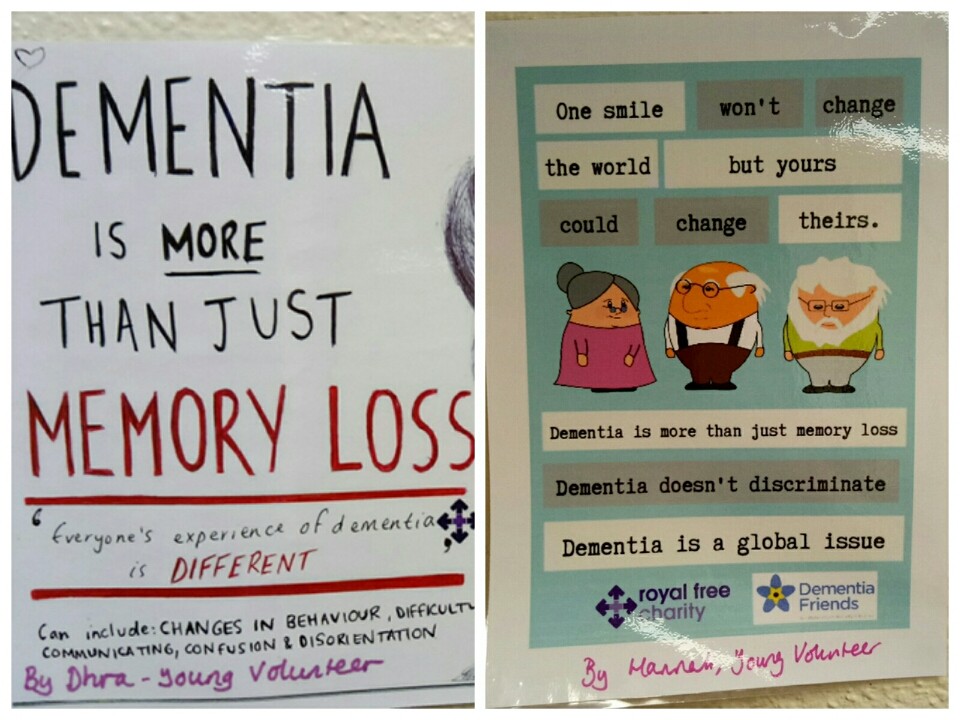 DEMENTIA
IS MORE
THAN JUST
MEMORY LOSS
‘Everyone's experience of dementia
is DIFFERENT’
Can include: CHANGES IN BEHAVIOUR, DIFFICULTY
COMMUNICATING, CONFUSION & DISORIENTATION
By Dhra - Young Volunteer
One smile won't change
the world but yours
could change theirs.
Dementia is more than just memory loss
Dementia doesn't discriminate
Dementia is a global issue
royal free
charity
Dementia
Friends
By Hannah, Young Volunteer